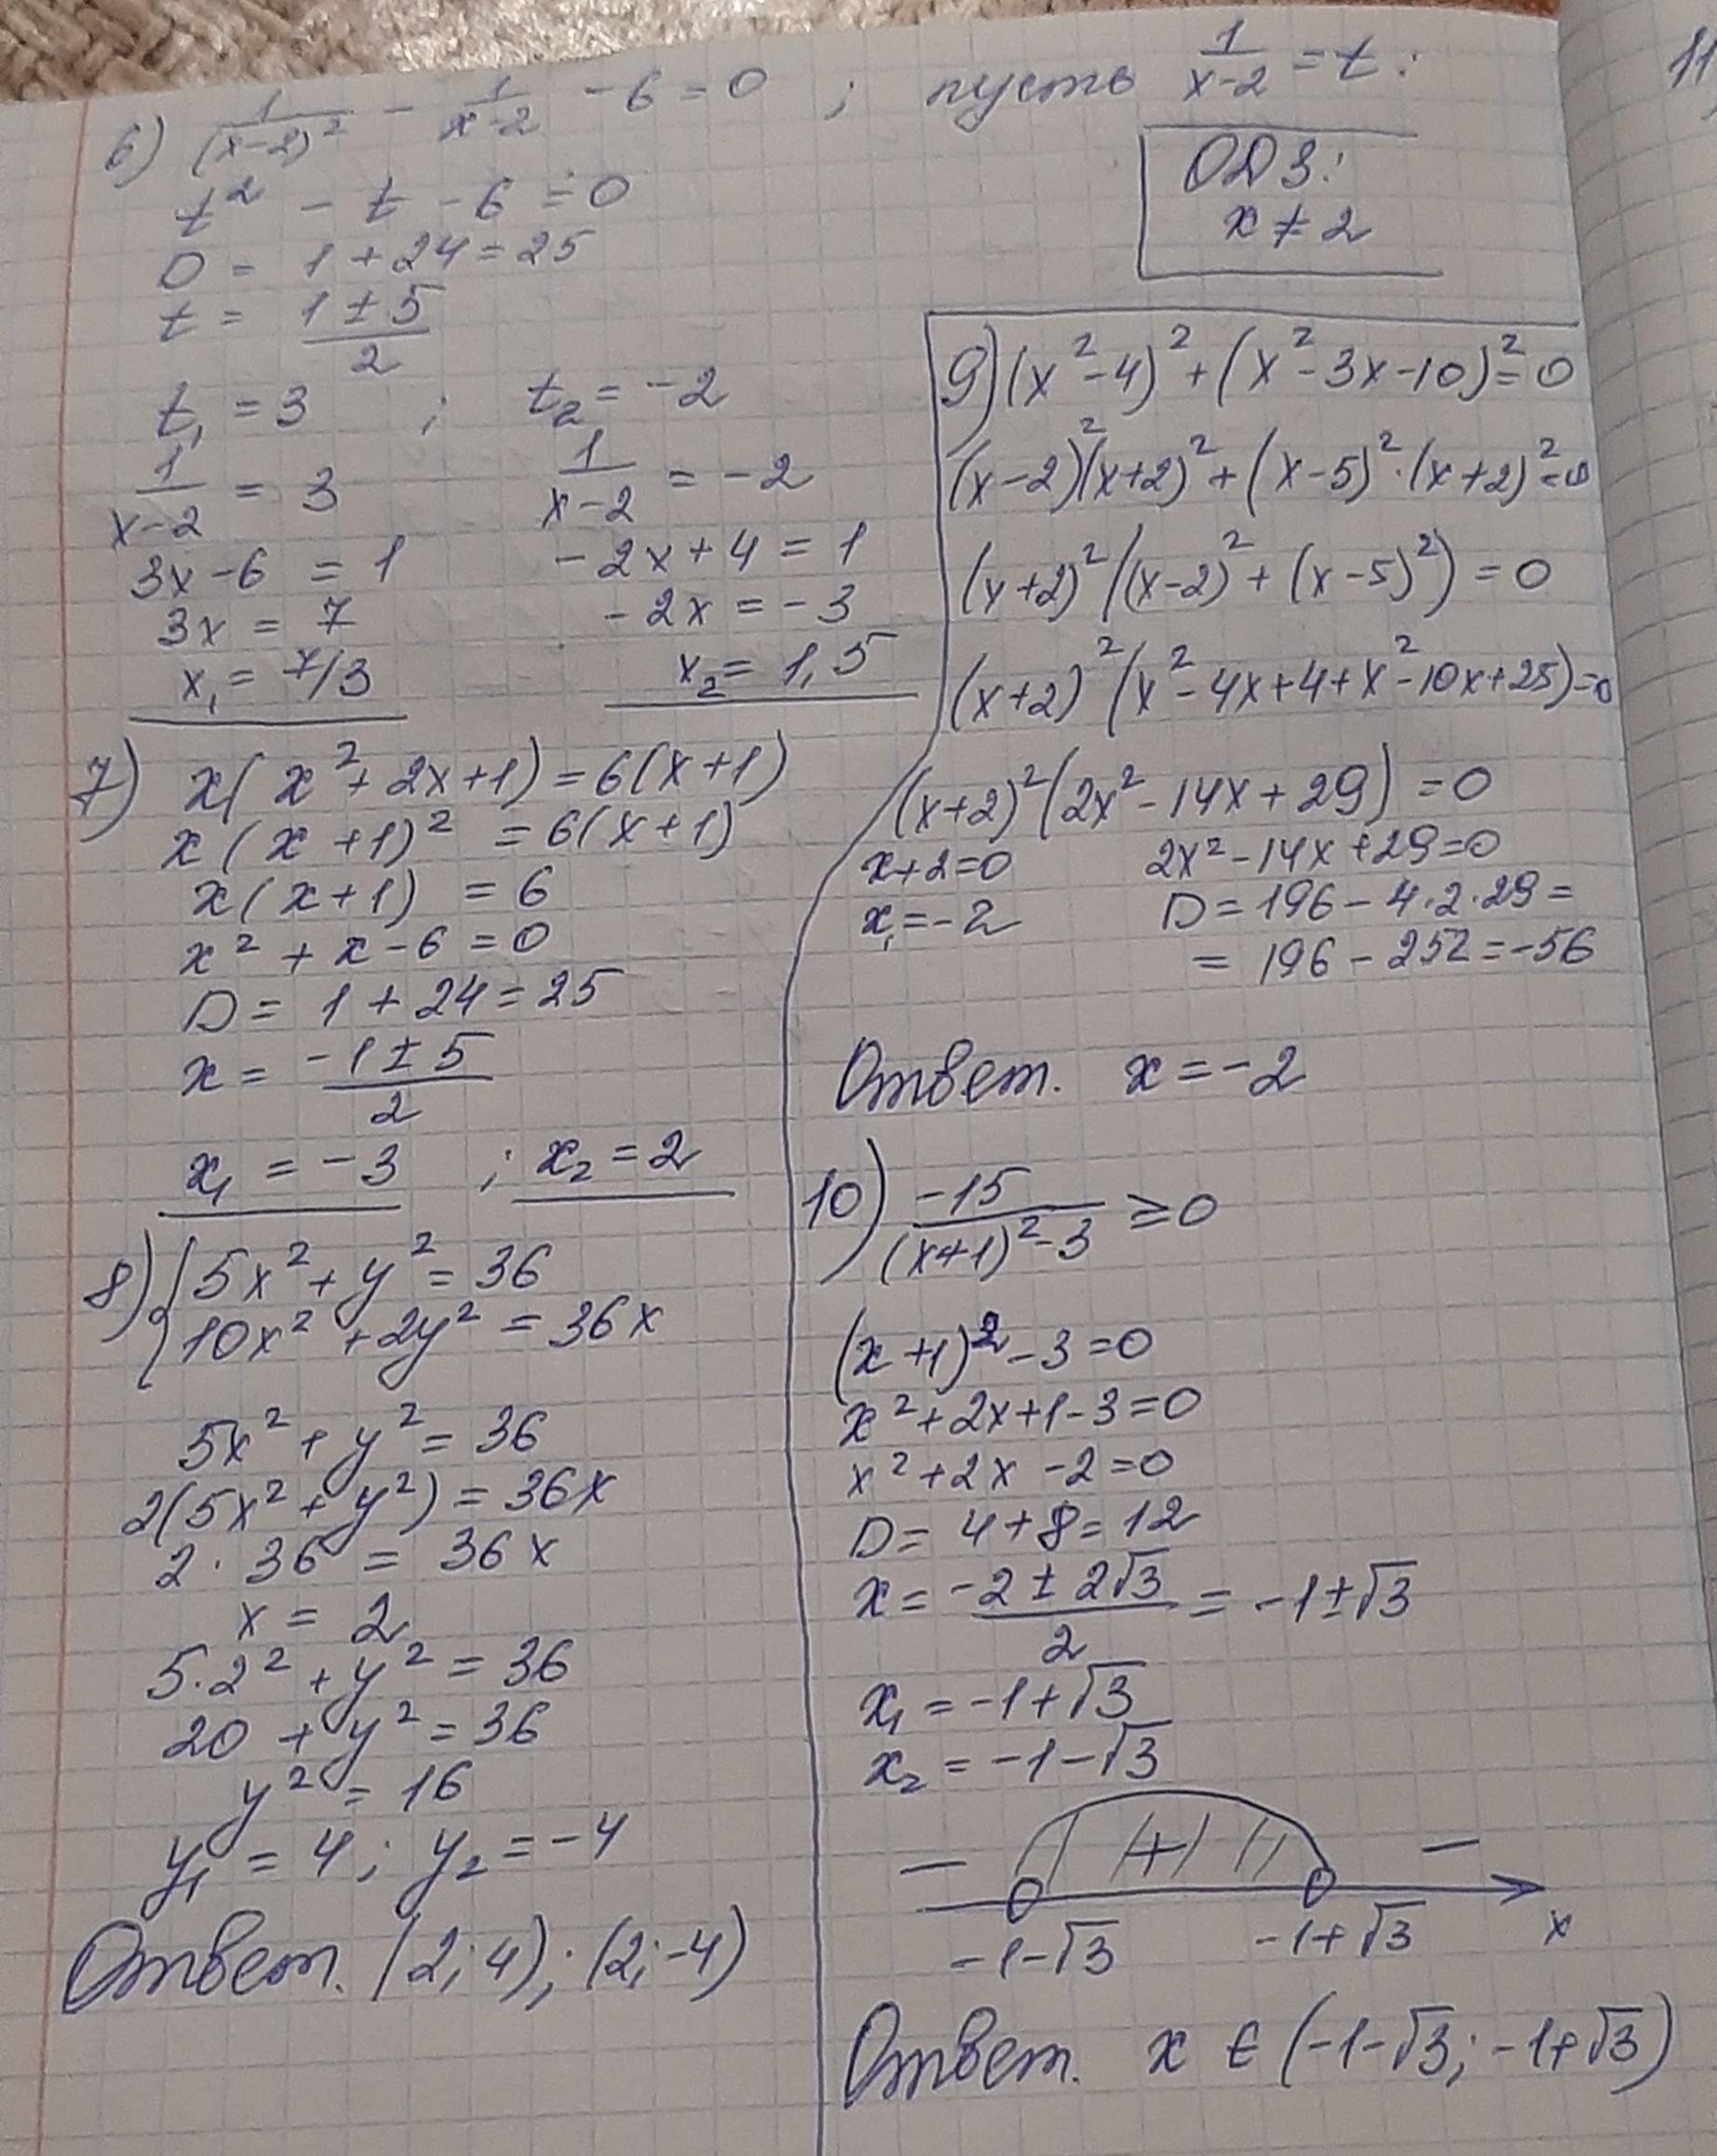 6) 1/(x-2)² - 1/(x-2) - 6 = 0 ; пусть 1/(x-2) = t :
ОДЗ:
x ≠ 2
t² - t - 6 = 0
D = 1 + 24 = 25
t = (1 ± 5)/2
t₁ = 3 ; t₂ = -2
1/(x-2) = 3
3x - 6 = 1
3x = 7
x₁ = 7/3
1/(x-2) = -2
-2x + 4 = 1
-2x = -3
x₂ = 1,5
7) x(x² + 2x + 1) = 6(x+1)
x(x+1)² = 6(x+1)
x(x+1) = 6
x² + x - 6 = 0
D = 1 + 24 = 25
x = (-1 ± 5)/2
x₁ = -3 ; x₂ = 2
8) { 5x² + y² = 36
10x² + 2y² = 36x
5x² + y² = 36
2(5x² + y²) = 36x
2 · 36 = 36x
x = 2
5·2² + y² = 36
20 + y² = 36
y² = 16
y₁ = 4 ; y₂ = -4
Ответ. (2; 4); (2; -4)
9) (x² - 4)² + (x² - 3x - 10)² = 0
(x-2)²(x+2)² + (x-5)²·(x+2)² = 0
(x+2)²((x-2)² + (x-5)²) = 0
(x+2)²(x² - 4x + 4 + x² - 10x + 25) = 0
(x+2)²(2x² - 14x + 29) = 0
x + 2 = 0
x₁ = -2
2x² - 14x + 29 = 0
D = 196 - 4·2·29 =
= 196 - 252 = -56
Ответ. x = -2
10) -15/((x+1)² - 3) ≥ 0
(x+1)² - 3 = 0
x² + 2x + 1 - 3 = 0
x² + 2x - 2 = 0
D = 4 + 8 = 12
x = (-2 ± 2√3)/2 = -1 ± √3
x₁ = -1 + √3
x₂ = -1 - √3
- + -
-1-√3 -1+√3 x
Ответ. x ∈ (-1-√3; -1+√3)
11)